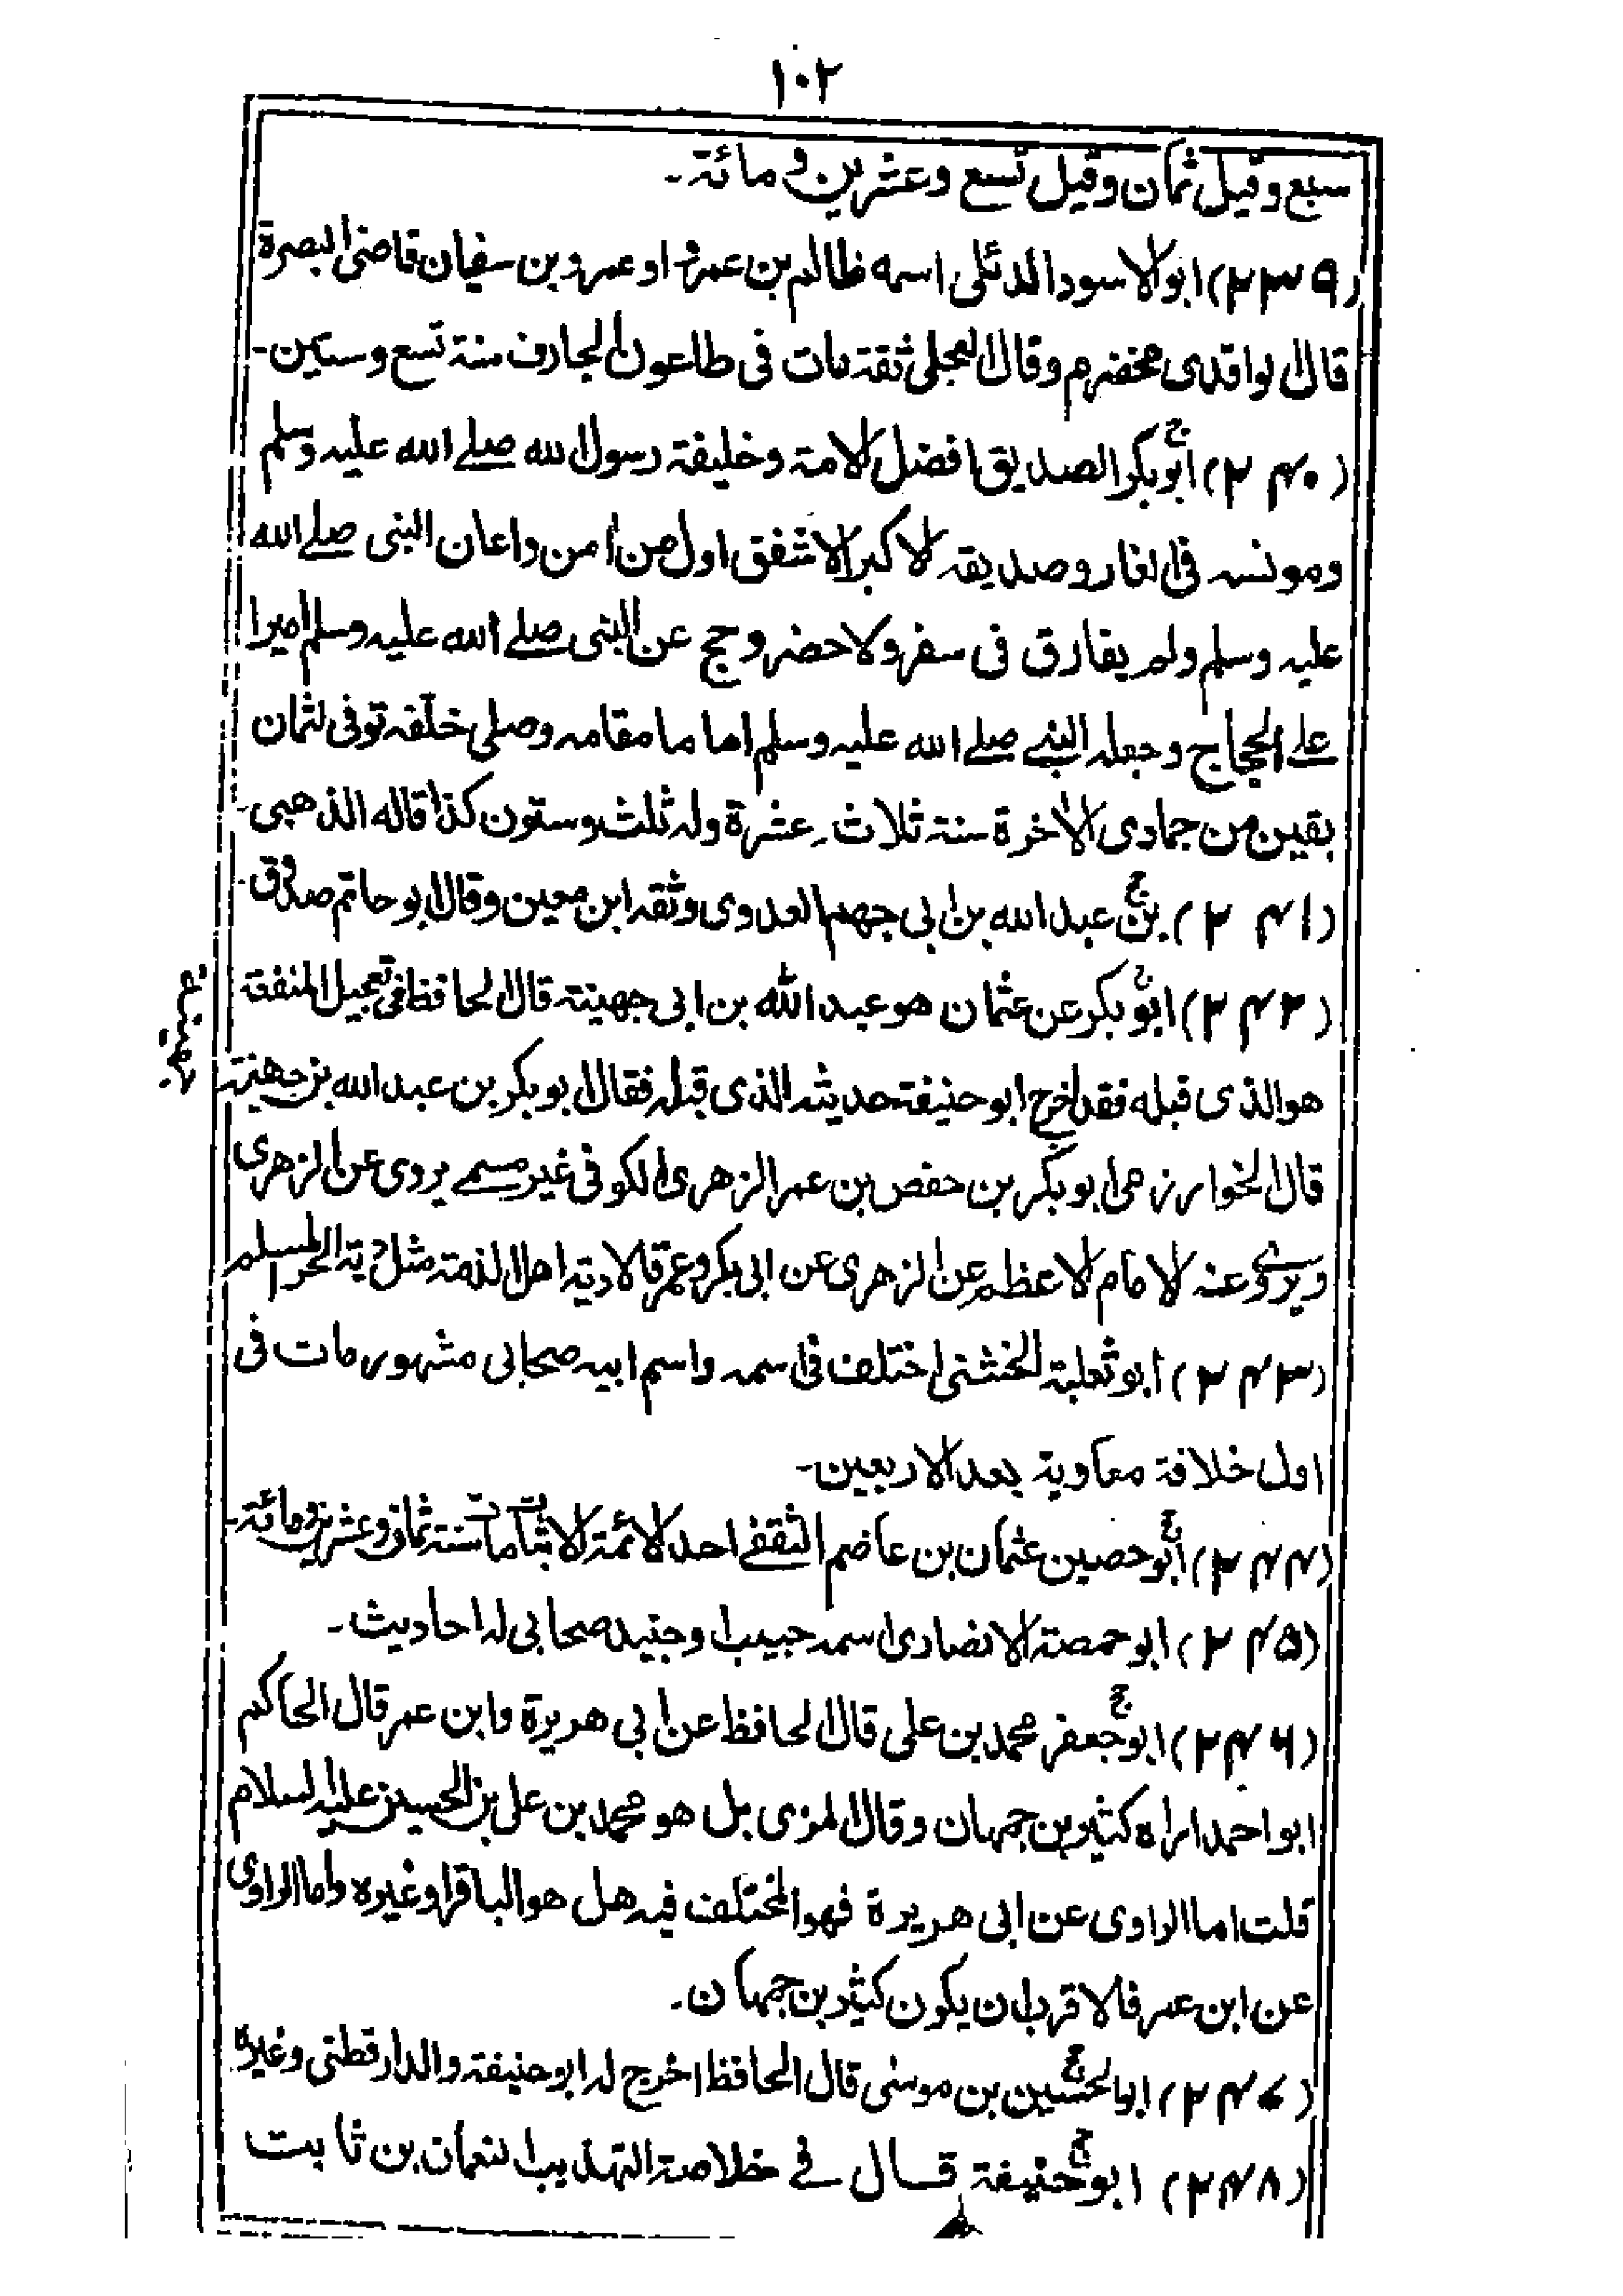 ۱۰۲
سبع وقيل ثمان وقيل تسع وعشرين ومائة۔
(۲۳۹) ابو الاسود الدئلى اسمه ظالم بن عمرو او عمرو بن سفيان قاضى البصرة
قال الواقدى مخضرم وقال العجلى ثقة مات فى طاعون الجارف سنة تسع وستين۔
(۲۴۰) ابو بكر الصديق افضل الامة وخليفة رسول الله صلے الله عليه وسلم
ومونسه فى الغار وصديقه الاكبر الاشفق اول من امن واعان النبى صلے الله
عليه وسلم ولم يفارق فى سفر ولا حضر وحج عن النبى صلے الله عليه وسلم اميرا
علے الحجاج وجعله النبے صلے الله عليه وسلم اماما مقامه وصلى خلفه توفى لثمان
بقين من جمادى الاخرة سنة ثلاث عشرة وله ثلث وستون كذا قاله الذهبى۔
(۲۴۱) بن عبد الله بن ابى جهم العدوى وثقه ابن معين وقال ابو حاتم صدوق۔
(۲۴۲) ابو بكر عن عثمان هو عبد الله بن ابى جهينة قال الحافظ فى تعجيل المنفعة
هو الذى قبله فقد اخرج ابو حنيفة حديثه الذى قبله فقال ابو بكر بن عبد الله بن جهينة
قال الخوارزمى ابو بكر بن حفص بن عمر الزهرى الكوفى غير مسمے يروى عن الزهرى
ويروے عنه الامام الاعظم عن الزهرى عن ابى بكر وعمر قالا دية اهل الذمة مثل دية الحر المسلم
(۲۴۳) ابو ثعلبة الخشنى اختلف فى اسمه واسم ابيه صحابى مشهور مات فى
اول خلافة معاوية بعد الاربعين۔
(۲۴۴) ابو حصين عثمان بن عاضم الثقفے احد الائمة الاثبات مات سنة ثمان وعشرين ومائة۔
(۲۴۵) ابو حمصة الانضادى اسمه حبيب او جنيد صحابى له احاديث۔
(۲۴۶) ابو جعفر محمد بن على قال الحافظ عن ابى هريرة وابن عمر قال الحاكم
ابو احمد اراه كثير بن جمهان وقال المزى بل هو محمد بن على بن الحسين عليه السلام
قلت اما الراوى عن ابى هريرة فهو المختلف فيه هل هو الباقر او غيره واما الراوى
عن ابن عمر فالاقرب ان يكون كثير بن جمهان۔
(۲۴۷) ابو الحسين بن موسى قال الحافظ اخرج له ابو حنيفة والدارقطنى وغيره
(۲۴۸) ابو حنيفة قال فے خلاصة التهذيب النعمان بن ثابت